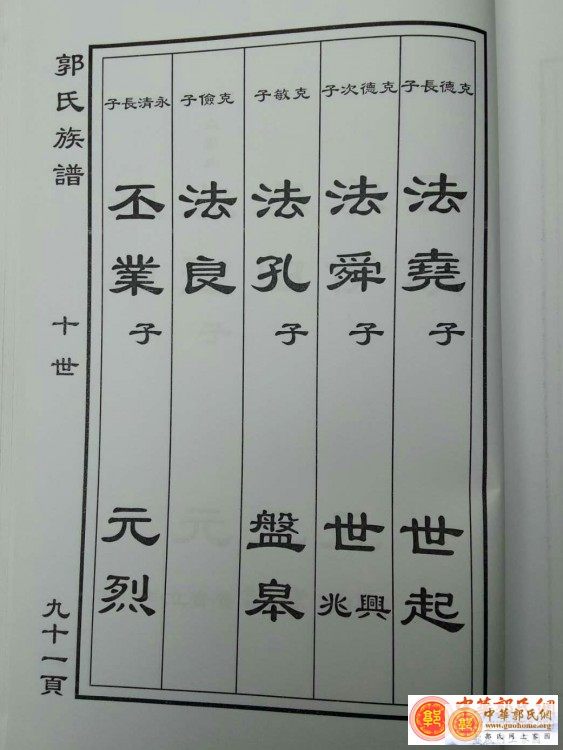 克德長子
法堯子
世起
克德次子
法舜子
世興兆
克敏子
法孔子
盤皋
克儉子
法良
永清長子
丕業子
元烈
郭氏族譜
十世
九十一頁
中華郭氏網
www.guohome.org